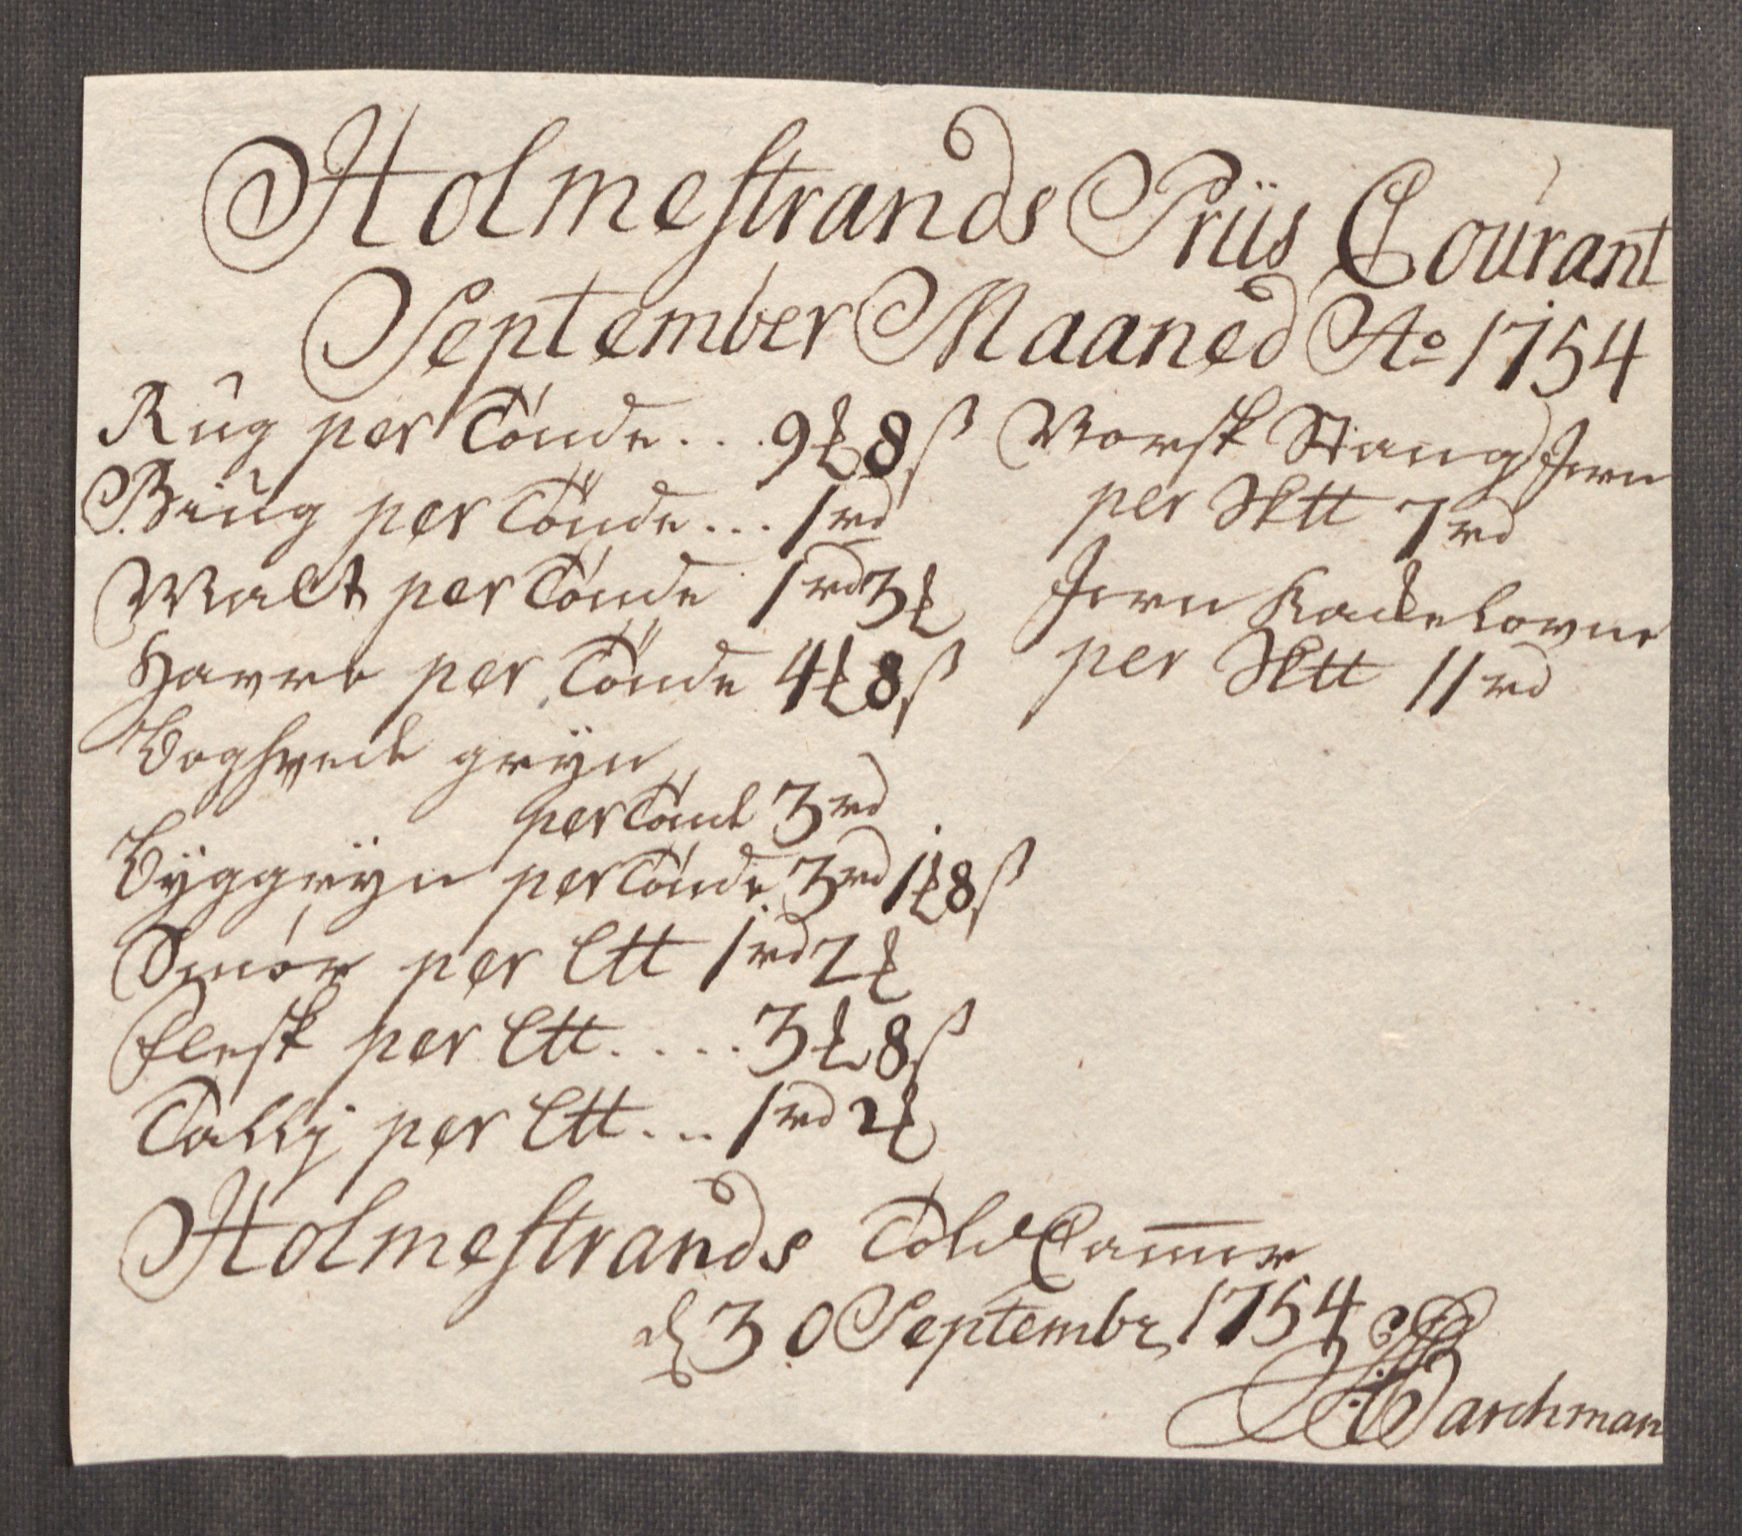 Holmestrands Priis Courant
September Maaned Ao 1754
Rug per Tønde... 9 ℔ 8 ß
Biug per Tönde... 1 rd
Malt per Tønde 1 rd 3 ℔
Havre per Tönde 4 ℔ 8 ß
Boghvede gryn
per Tønde 3 rd
Byggryn per Tønde 3 rd 1 ℔ 8 ß
Smør per Ltt 1 rd 2 ℔
Flesk per Ltt..... 3 ℔ 8 ß
Tallig per Ltt... 1 rd 2 ℔
Norsk Stang Jern
per Sktt 7 rd
Jern Kackelovne
per Sktt 11 rd
Holmestrands Told Camer
d 30 Septembr 1754
Barchman